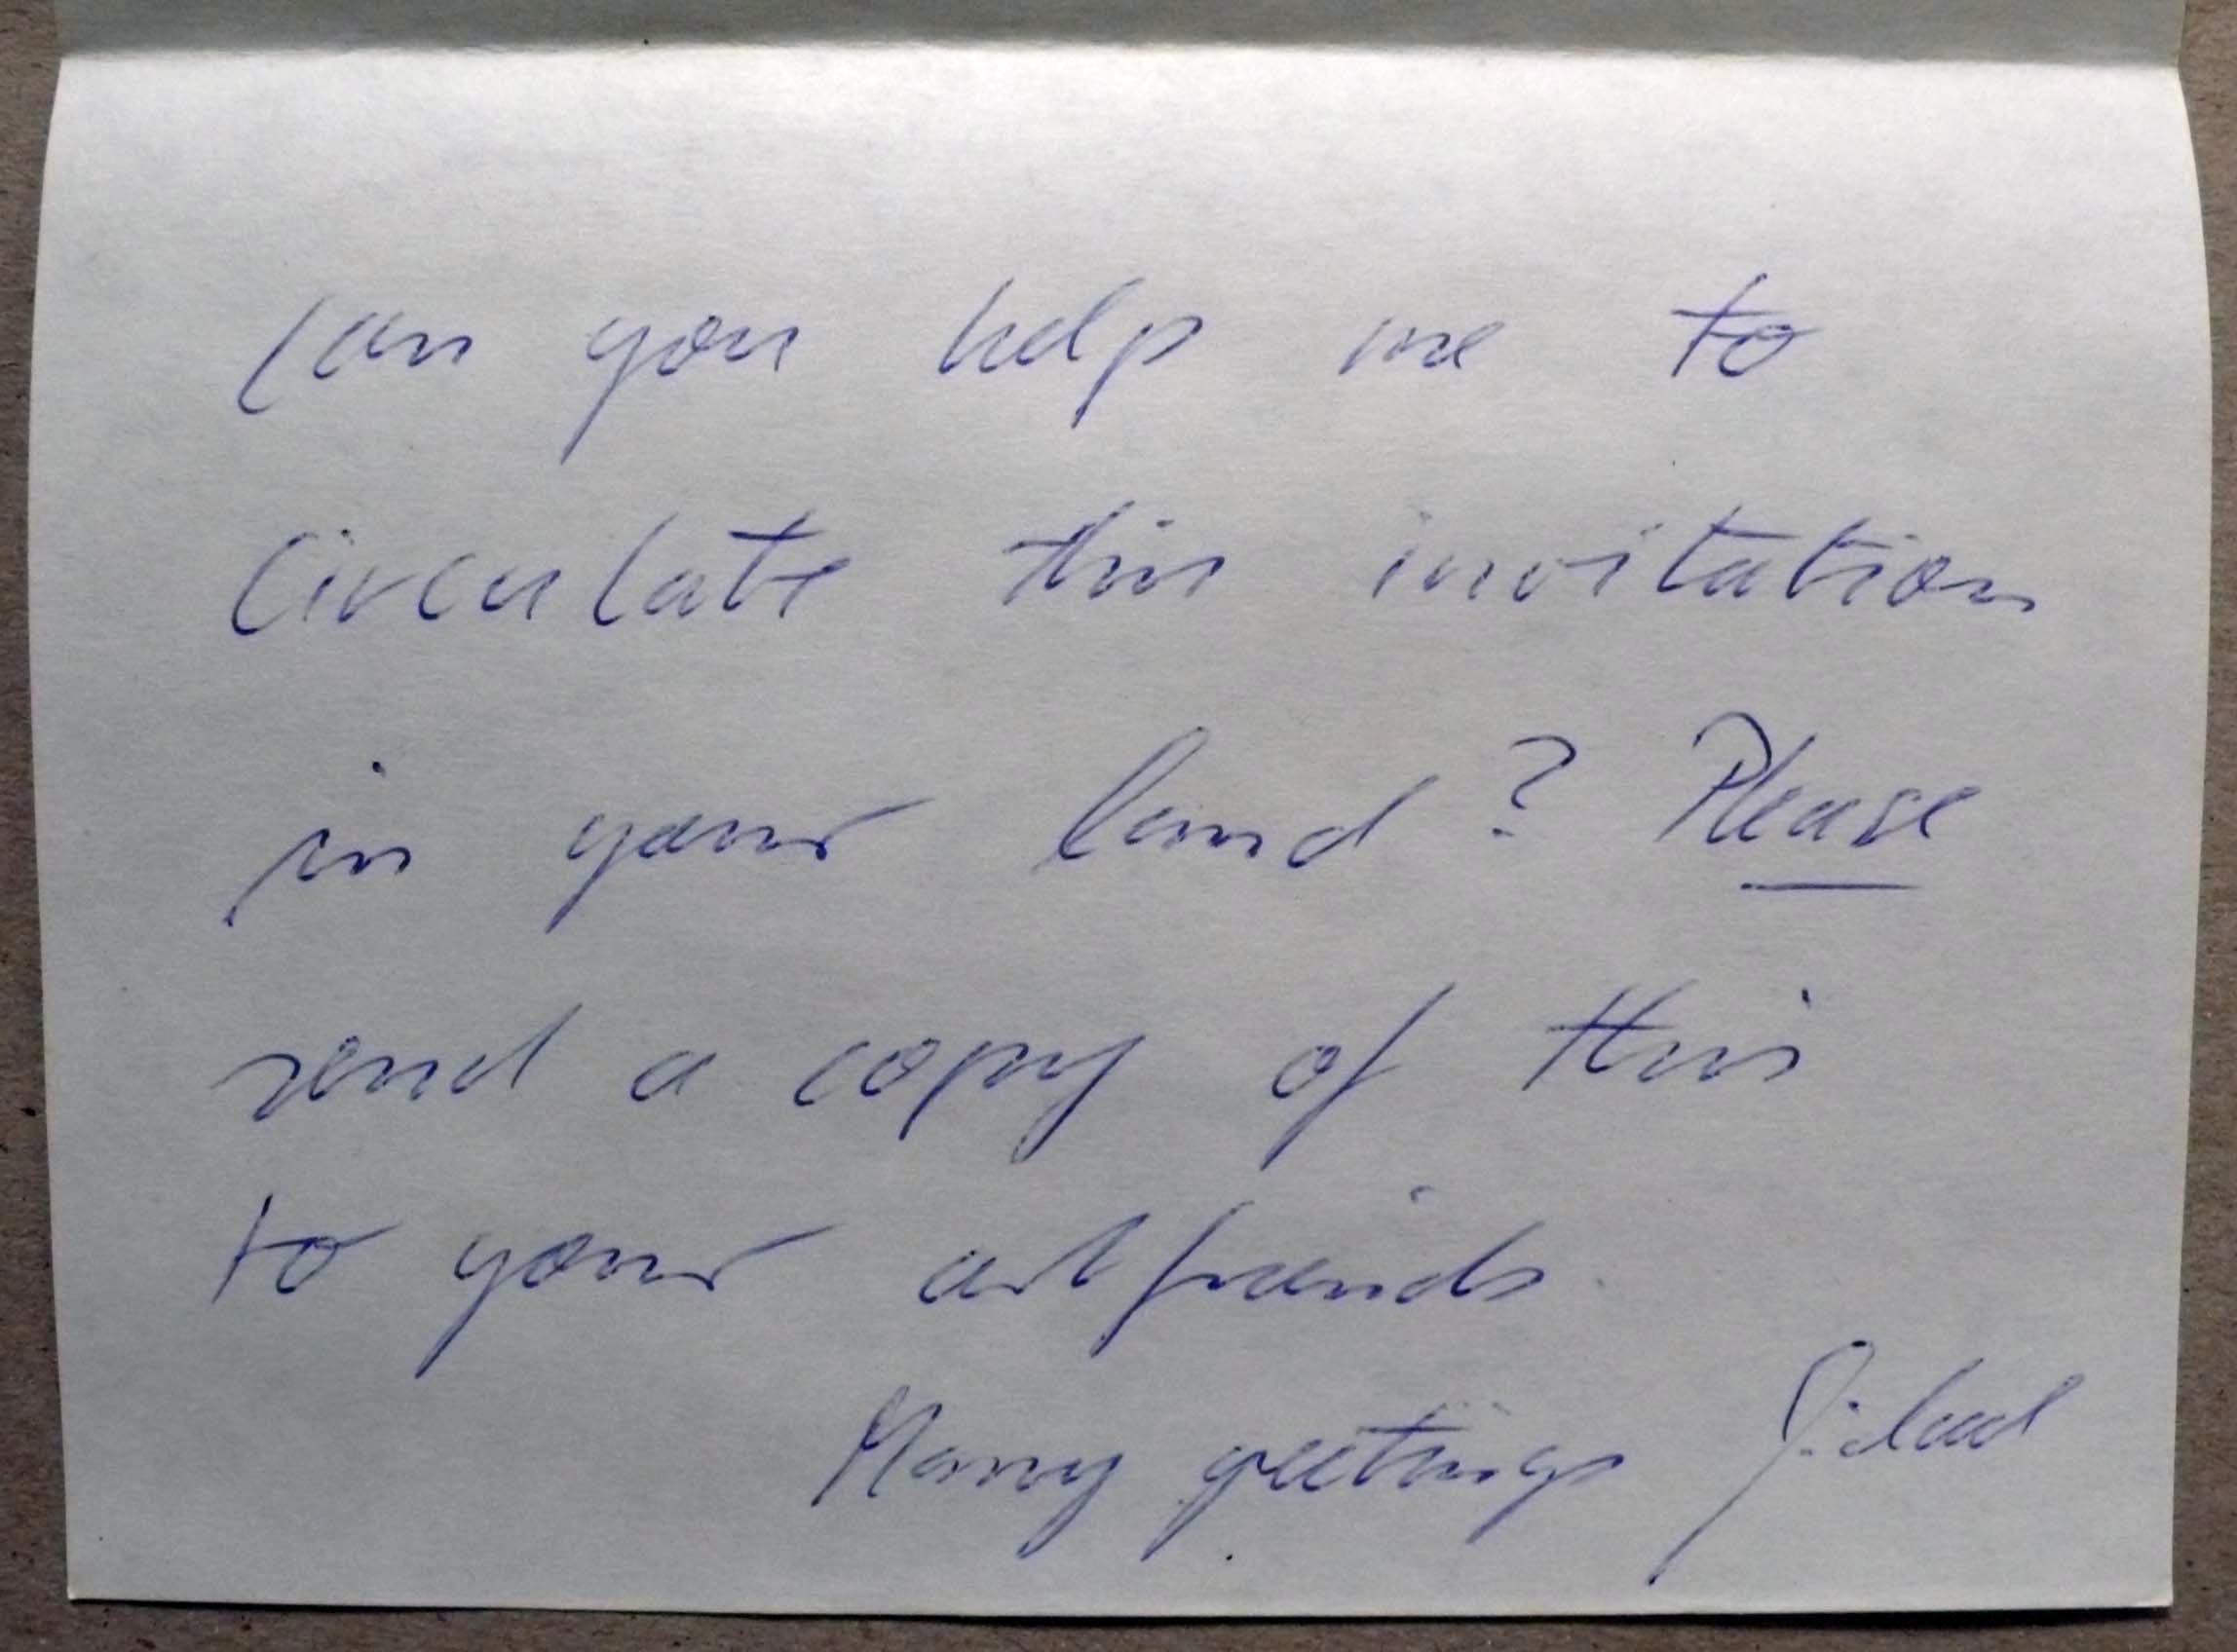 Can you help me to
Circulate this invitation
in your land? Please
send a copy of this
to your artfrainds.
Many greetings